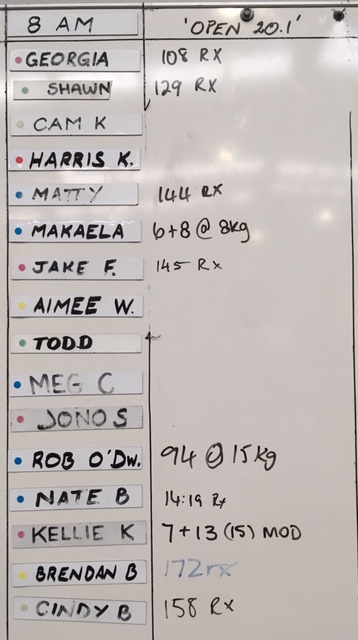 8 AM 'OPEN 20.1'
GEORGIA 108 RX
SHAWN 129 RX
CAM K
HARRIS K.
MATTY 144 RX
MAKAELA 6+8 @ 8kg
JAKE F. 145 Rx
AIMEE W.
TODD
MEG C
JONO S
ROB O'DW. 94 @ 15kg
NATE B 14:19 Rx
KELLIE K 7+13 (15) MOD
BRENDAN B 172rx
CINDY B 158 RX